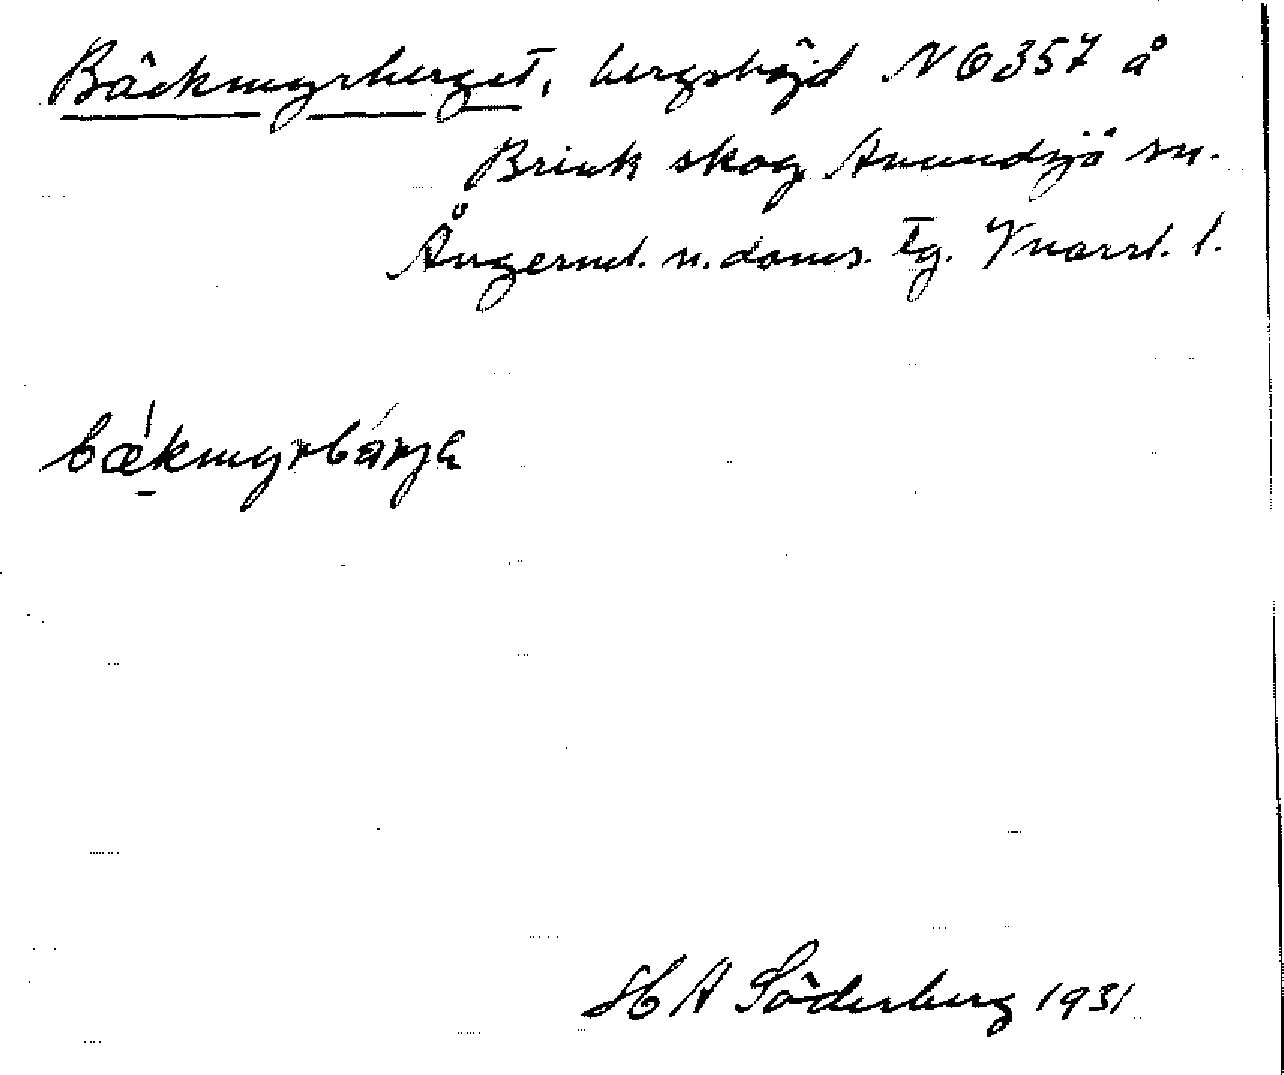 Bäckmyrberget, bergshöjd NO 357 å
Brink skog Anundsjö sn.
Ångerml. n. doms. tg. Vnorrl. l.
bækmyrbárja
H A Söderberg 1931